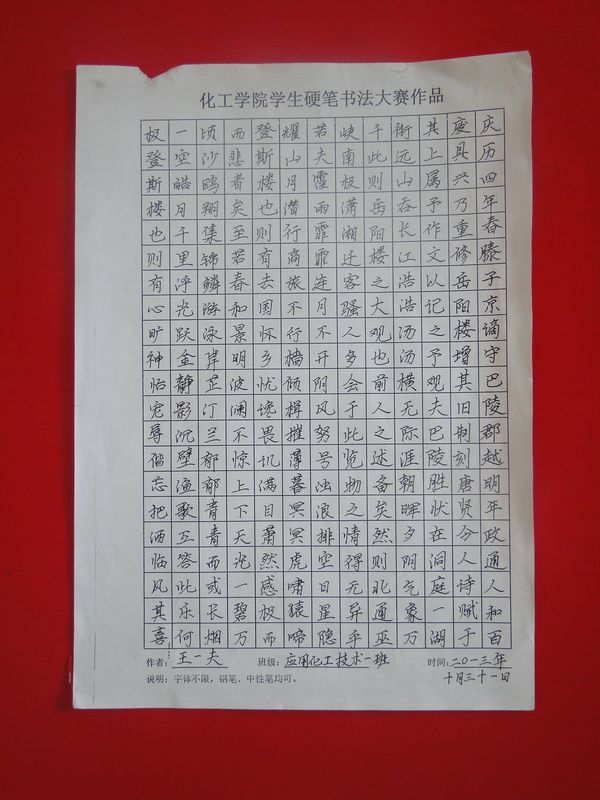 化工学院学生硬笔书法大赛作品
庆历四年春滕子京谪守巴陵郡越明年政通人和百
废具兴乃重修岳阳楼增其旧制刻唐贤今人诗赋于
其上属予作文以记之予观夫巴陵胜状在洞庭一湖
衔远山吞长江浩浩汤汤横无际涯朝晖夕阴气象万
千此则岳阳楼之大观也前人之述备矣然则北通巫
峡南极潇湘迁客骚人多会于此览物之情得无异乎
若夫霪雨霏霏连月不开阴风努号浊浪排空日星隐
耀山月潜行商旅不行樯倾楫摧薄暮冥冥虎啸猿啼
登斯楼也则有去国怀乡忧谗畏讥满目萧然感极而
而悲者矣至若春和景明波澜不惊上下天光一碧万
顷沙鸥翔集锦鳞游泳岸芷汀兰郁郁青青而或长烟
一空皓月千里浮光跃金静影沉璧渔歌互答此乐何
极登斯楼也则有心旷神怡宠辱偕忘把酒临风其喜
作者：王一夫 班级：应用化工技术一班 时间：二〇一三年
十月三十一日
说明：字体不限，钢笔、中性笔均可。